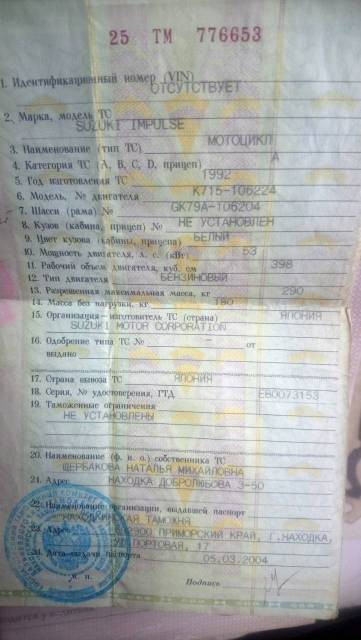 25 ТМ 776653
1. Идентификационный номер (VIN)
ОТСУТСТВУЕТ
2. Марка, модель ТС
SUZUKI IMPULSE
3. Наименование (тип ТС) МОТОЦИКЛ
4. Категория ТС (A, B, C, D, прицеп) A
5. Год изготовления ТС 1992
6. Модель, № двигателя K715-106224
7. Шасси (рама) № GK79A-106204
8. Кузов (кабина, прицеп) № НЕ УСТАНОВЛЕН
9. Цвет кузова (кабины, прицепа) БЕЛЫЙ
10. Мощность двигателя, л. с. (кВт) 53
11. Рабочий объем двигателя, куб. см 398
12. Тип двигателя БЕНЗИНОВЫЙ
13. Разрешенная максимальная масса, кг 290
14. Масса без нагрузки, кг 180
15. Организация—изготовитель ТС (страна) ЯПОНИЯ
SUZUKI MOTOR CORPORATION
16. Одобрение типа ТС № - от
выдано
17. Страна вывоза ТС ЯПОНИЯ
18. Серия, № удостоверения, ГТД ЕВ0073153
19. Таможенные ограничения
НЕ УСТАНОВЛЕНЫ
20. Наименование (ф. и. о.) собственника ТС
ЩЕРБАКОВА НАТАЛЬЯ МИХАЙЛОВНА
21. Адрес НАХОДКА ДОБРОЛЮБОВА 3-50
22. Наименование организации, выдавшей паспорт
НАХОДКИНСКАЯ ТАМОЖНЯ
23. Адрес 692900 ПРИМОРСКИЙ КРАЙ, Г.НАХОДКА,
УЛ.ПОРТОВАЯ, 17
24. Дата выдачи паспорта 05.03.2004
м. п. Подпись